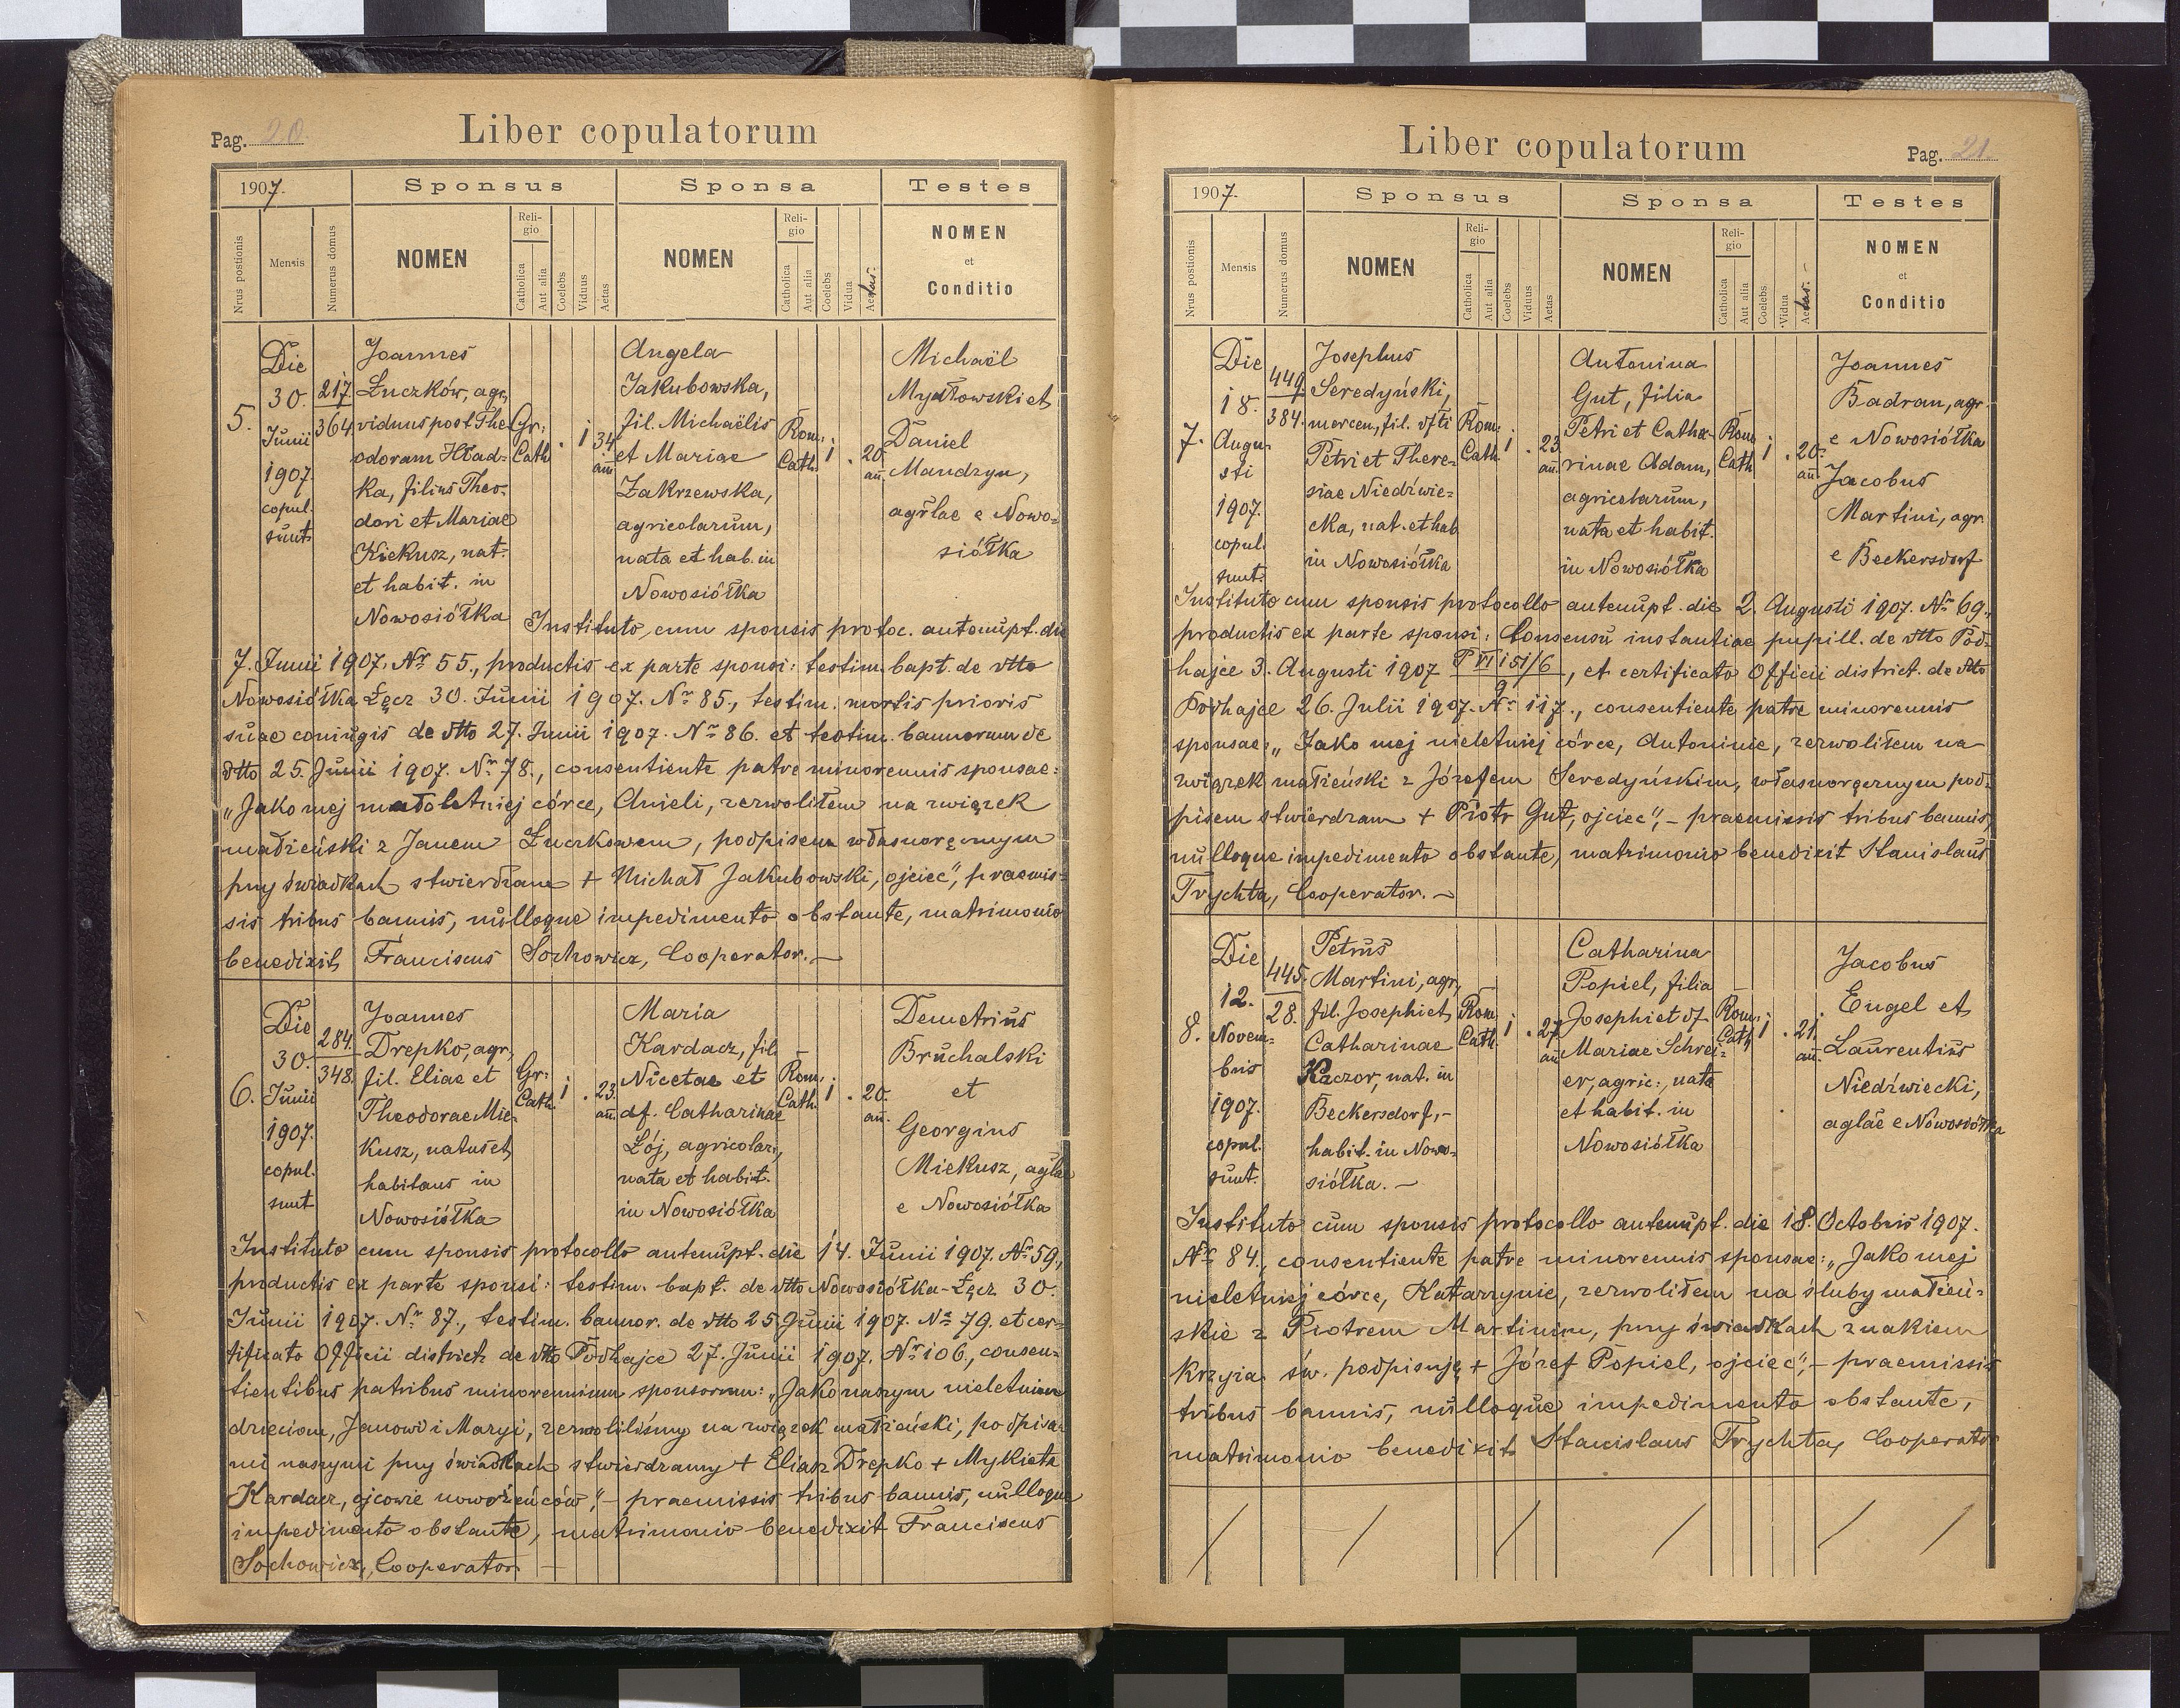 Pag. 20.
Liber copulatorum
1907.
Sponsus
Sponsa
Testes
Nrus postionis
Mensis
Numerus domus
NOMEN
Religio
Catholica
Aut alia
Coelebs
Viduus
Aetas
NOMEN
Religio
Catholica
Aut alia
Coelebs
Vidua
Aetas.
NOMEN
et
Conditio
5.
Die
30.
Junii
1907.
copul.
sunt
217.
364.
Joannes
Łuczków, agr.,
viduus post The-
odoram Hład-
ka, filius Theo-
dori et Mariae
Kiekusz, nat.
et habit. in
Nowosiółka
Gr:
Cath
.
1
34
añ
Angela
Jakubowska,
fil. Michaëlis
et Mariae
Zakrzewska,
agricolarum,
nata et hab. in
Nowosiółka
Rom:
Cath.
1
.
20.
añ.
Michaël
Mydłowski et
Daniel
Mandzyn,
agrlae e Nowo-
siółka
Instituto cum sponsis protoc. antenupt. die
7. Junii 1907. Nr 55., productis ex parte sponsi: testim. bapt. de dtto
Nowosiółka Łęcz 30. Junii 1907. Nr 85., testim. mortis prioris
suae coniugis de dtto 27. Junii 1907. Nr 86. et testim. bannorum de
dtto 25. Junii 1907. Nr 78., consentiente patre minorennis sponsae:
„Jako mej małoletniej córce, Anieli, zezwoliłem na związek
małżeński z Janem Łuczkowem, podpisem własnoręcznym
przy świadkach stwierdzam + Michał Jakubowski, ojciec", praemis-
sis tribus bannis, nulloque impedimento obstante, matrimonio
benedixit Franciscus Sochowicz, Cooperator. —
6.
Die
30.
Junii
1907.
copul.
sunt
284.
348.
Joannes
Drepko, agr,
fil. Eliae et
Theodorae Mie-
kusz, natus et
habitans in
Nowosiółka
Gr:
Cath.
1
.
23.
añ.
Maria
Kardacz, fil
Nicetae et
df. Catharinae
Łój, agricolar,
nata et habit.
in Nowosiółka
Rom:
Cath.
1
.
20.
añ.
Demetrius
Bruchalski
et
Georgius
Miekusz, aglae
e Nowosiółka
Instituto cum sponsis protocollo antenupt. die 14. Junii 1907. Nr 59.,
productis ex parte sponsi: testim. bapt. de dtto Nowosiółka-Łęcz 30.
Junii 1907. Nr 87., testim. bannor. de dtto 25 Junii 1907. Nr 79. et cer-
tificato Officii district. de dtto Podhajce 27. Junii 1907. Nr 106., consen-
tientibus patribus minorennium sponsorum: „Jako naszym nieletnim
dzieciom, Janowi i Maryi, zezwoliliśmy na związek małżeński, podpisa-
mi naszymi przy świadkach stwierdzamy + Eliasz Drepko + Mykieta
Kardacz, ojcowie nowożeńców", – praemissis tribus bannis, nulloque
impedimento obstante, matrimonio benedixit Franciscus
Sochowicz, Cooperator —
Liber copulatorum
Pag. 21.
1907.
Sponsus
Sponsa
Testes
Nrus postionis
Mensis
Numerus domus
NOMEN
Religio
Catholica
Aut alia
Coelebs
Viduus
Aetas
NOMEN
Religio
Catholica
Aut alia
Coelebs
Vidua
Aetas.
NOMEN
et
Conditio
7.
Die
18.
Augu-
sti
1907.
copul.
sunt.
449.
384.
Josephus
Seredyński,
mercen, fil. dfti
Petri et There-
siae Niedźwie-
cka, nat. et hab
in Nowosiółka
Rom:
Cath.
1
.
23.
añ.
Antonina
Gut, filia
Petri et Catha-
rinae Adam,
agricolarum,
nata et habit.
in Nowosiółka
Rom
Cath
1
.
20.
añ.
Joannes
Badran, agr.
e Nowosiółka
Jacobus
Martini, agr.
e Beckersdorf
Instituto cum sponsis protocollo antenupt. die 2. Augusti 1907. Nr 69.,
productis ex parte sponsi: Consensu instantiae pupill. de dtto Pod-
hajce 3. Augusti 1907 P VI 151/6 / 9, et certificato Officii district. de dtto
Podhajce 26. Julii 1907. Nr 117., consentiente patre minorennis
sponsae: „Jako mej nieletniej córce, Antoninie, zezwoliłem na
związek małżeński z Józefem Seredyńskim, własnoręcznym pod-
pisem stwierdzam + Piotr Gut, ojciec", – praemissis tribus bannis,
nulloque impedimento obstante, matrimonio benedixit Stanislaus
Trychta, Cooperator. —
8.
Die
12.
Novem-
bris
1907.
copul.
sunt.
445.
28.
Petrus
Martini, agr,
fil. Josephi et
Catharinae
Kaczor, nat. in
Beckersdorf, -
habit. in Nowo-
siółka. —
Rom
Cath.
1
.
27.
añ
Catharina
Popiel, filia
Josephi et df.
Mariae Schrei-
er, agric:, nata
et habit. in
Nowosiółka
Rom:
Cath
1
.
21.
añ.
Jacobus
Engel et
Laurentius
Niedźwiecki,
aglae e Nowosiółka
Instituto cum sponsis protocollo antenupt. die 18. Octobris 1907.
Nr 84., consentiente patre minorennis sponsae: „Jako mej
nieletniej córce, Katarzynie, zezwoliłem na śluby małżeń-
skie z Piotrem Martinim, przy świadkach znakiem
krzyża św. podpisuję + Józef Popiel, ojciec", – praemissis
tribus bannis, nulloque impedimento obstante, -
matrimonio benedixit Stanislaus Trychta, Cooperator